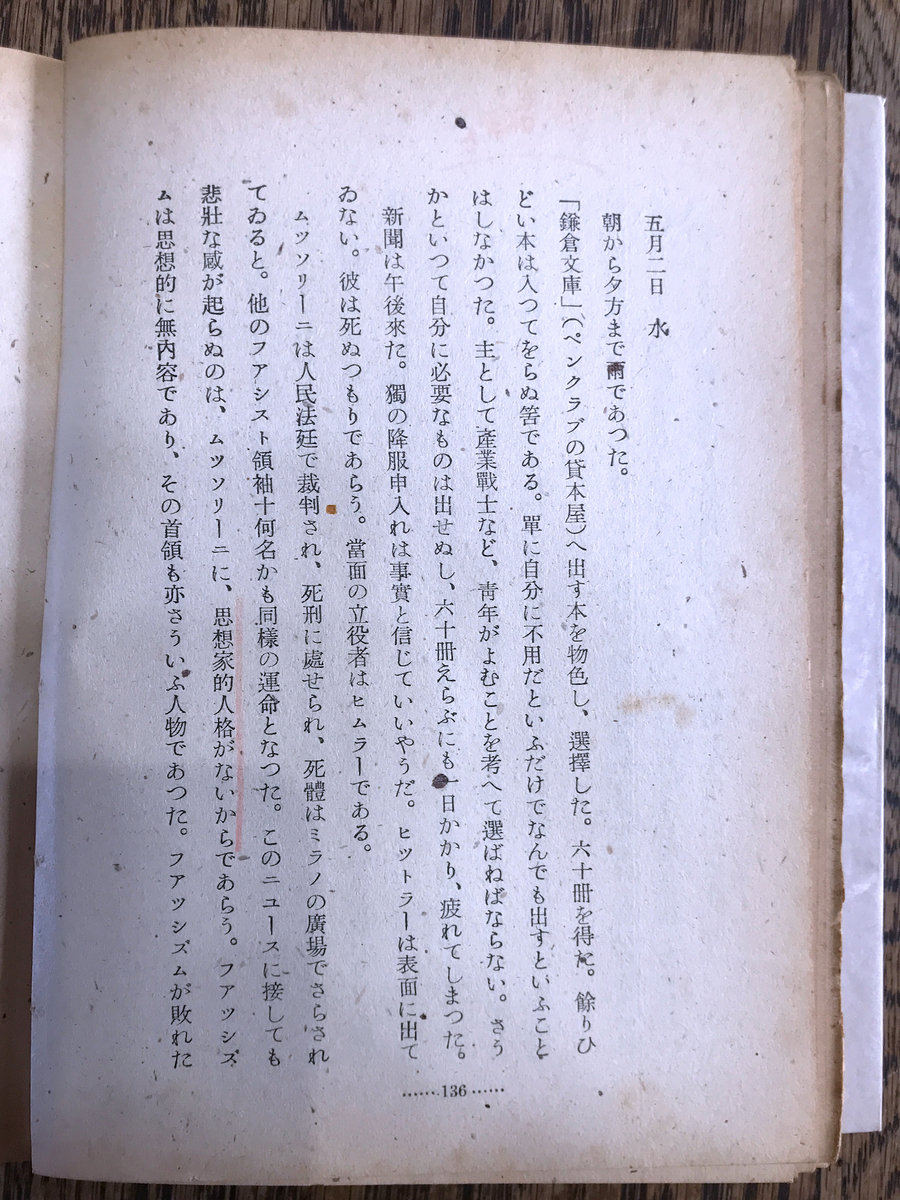 五月二日　水
朝から夕方まで雨であつた。
「鎌倉文庫」（ペンクラブの貸本屋）へ出す本を物色し、選擇した。六十冊を得た。餘りひ
どい本は入つてをらぬ筈である。單に自分に不用だといふだけでなんでも出すといふこと
はしなかつた。主として產業戰士など、靑年がよむことを考へて選ばねばならない。さう
かといつて自分に必要なものは出せぬし、六十冊えらぶにも一日かかり、疲れてしまつた。
新聞は午後來た。獨の降服申入れは事實と信じていいやうだ。ヒットラーは表面に出て
ゐない。彼は死ぬつもりであらう。當面の立役者はヒムラーである。
ムツソリーニは人民法廷で裁判され、死刑に處せられ、死體はミラノの廣場でさらされ
てゐると。他のフアシスト領袖十何名かも同樣の運命となつた。このニユースに接しても
悲壯な感が起らぬのは、ムツソリーニに、思想家的人格がないからであらう。フアツシズ
ムは思想的に無內容であり、その首領も亦さういふ人物であつた。フアツシズムが敗れた
……136……